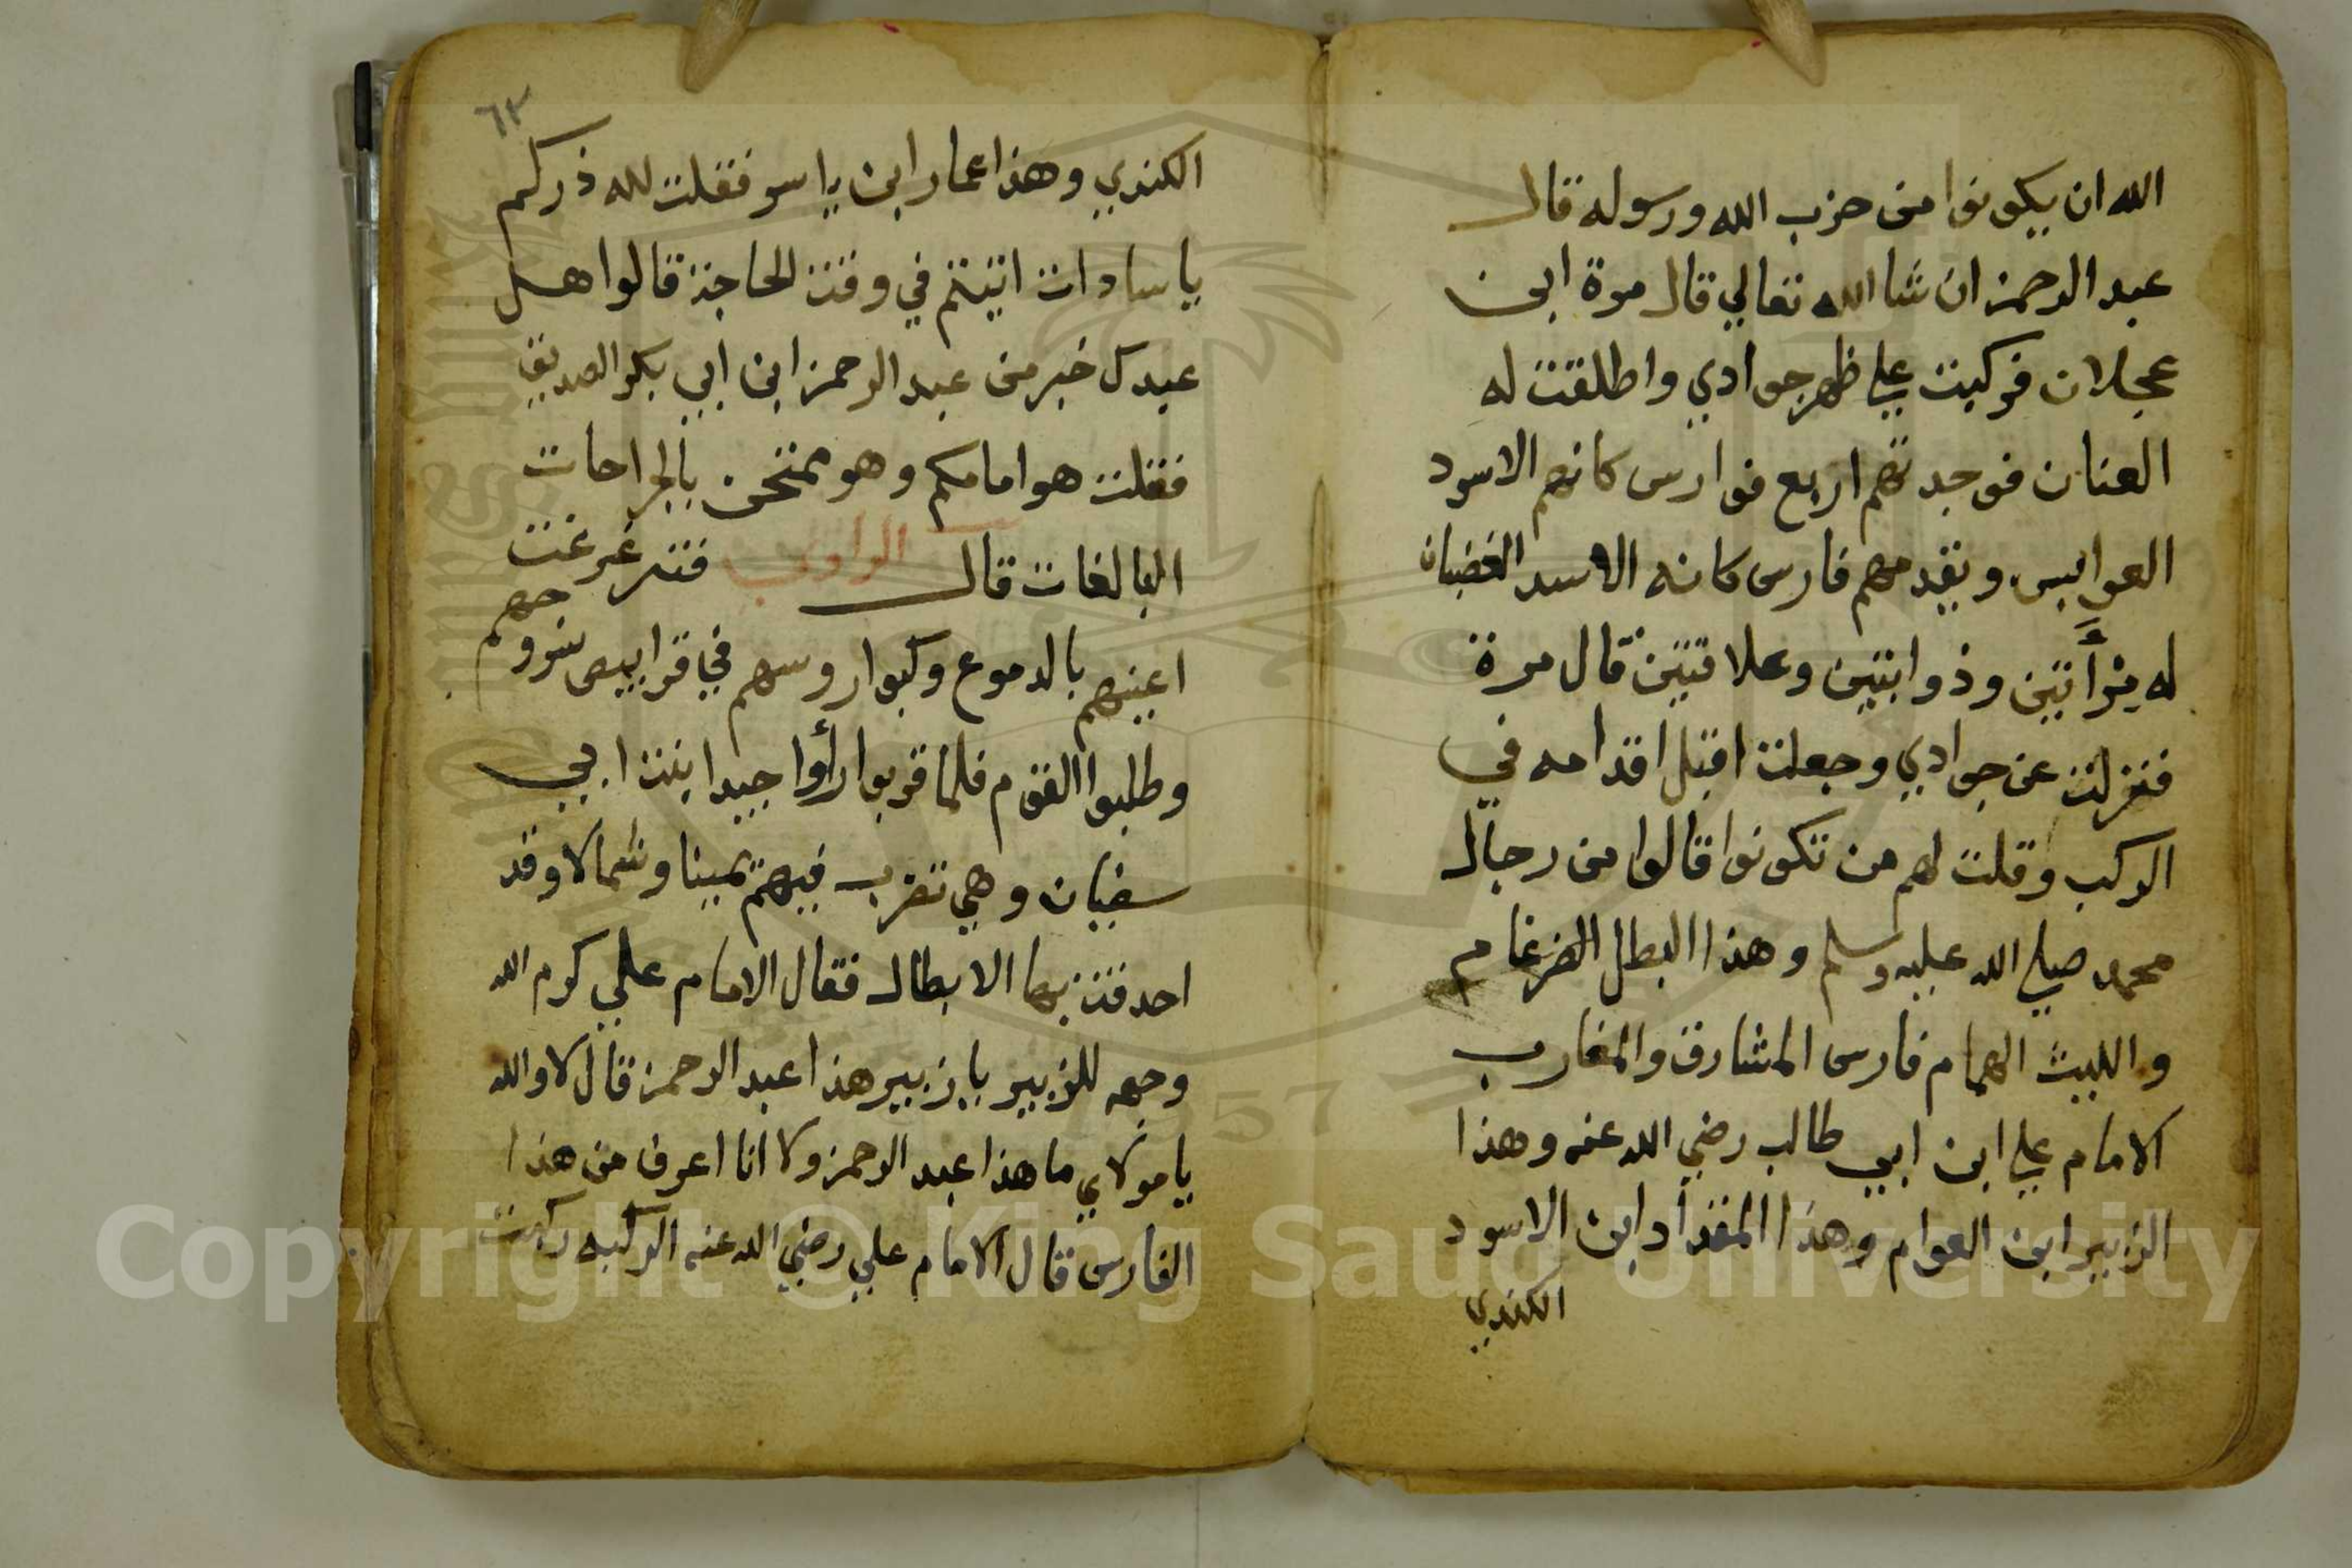 الله ان يكونوا من حزب الله ورسوله قال
عبد الرحمن ان شا الله تعالي قال مرة ابن
عجلان فركبت علي ظهر جوادي واطلقت له
العنان فوجدتهم اربع فوارس كانهم الاسود
العوابس ويقدمهم فارس كانه الاسد الغضبان
له وذوابتين وعلاقتين قال مرة
فنزلت عن جوادي وجعلت اقبل اقدامه في
الركب وقلت لهم من تكونوا قالوا من رجال
محمد صلي الله عليه وسلم وهذا البطل الضرغام
والليث الهمام فارس المشارق والمغارب
الامام علي ابن ابي طالب رضي الله عنه وهذا
الزبير ابن العوام وهذا المقداد ابن الاسود
الكندي
٦٣
الكندي وهذا عمار ابن ياسر فقلت لله ذركم
يا سادات اتيتم في وقت الحاجة قالوا هل
عبدك خبر من عبد الرحمن ابن ابي بكر الصديق
فقلت هو امامكم وهو ممتحن بالجراحات
البالغات قال الراوي فتغرغرت
اعينهم بالدموع وكبوا روسهم في قرابيص سروجهم
وطلبوا القوم فلما قربوا رأوا جيدا بنت ابي
سفيان وهي تضرب فيهم يمينا وشمالا وقد
احدقت بها الابطال فقال الامام علي كرم الله
وجهه للزبير يا زبير هذا عبد الرحمن قال لا والله
يا مولاي ما هذا عبد الرحمن ولا انا اعرف من هذا
الفارس قال الامام علي رضي الله عنه الركبه ركبت
Copyright © King Saud University
1957